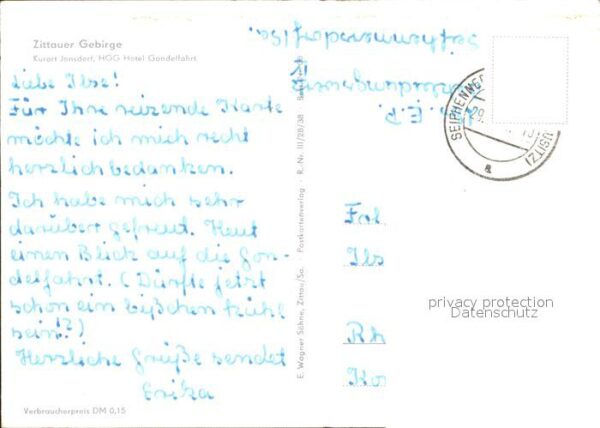 Zittauer Gebirge
Kurort Jonsdorf, HOG Hotel Gondelfahrt
Liebe Ilse!
Für Ihre reizende Karte
möchte ich mich recht
herzlich bedanken.
Ich habe mich sehr
darüber gefreut. Heut
einen Blick auf die Gon-
delfahrt. (Dürfte jetzt
schon ein bißchen kühl
sein!?)
Herzliche Grüße sendet
Erika
Verbraucherpreis DM 0,15
E. Wagner Söhne, Zittau/Sa. · Postkartenverlag · R. Nr. III/28/38
Seifhennersdorf/Sa.
E. P.
SEIFHENNERS
29.
USITZ)
a
Ils
Rh
privacy protection
Datenschutz